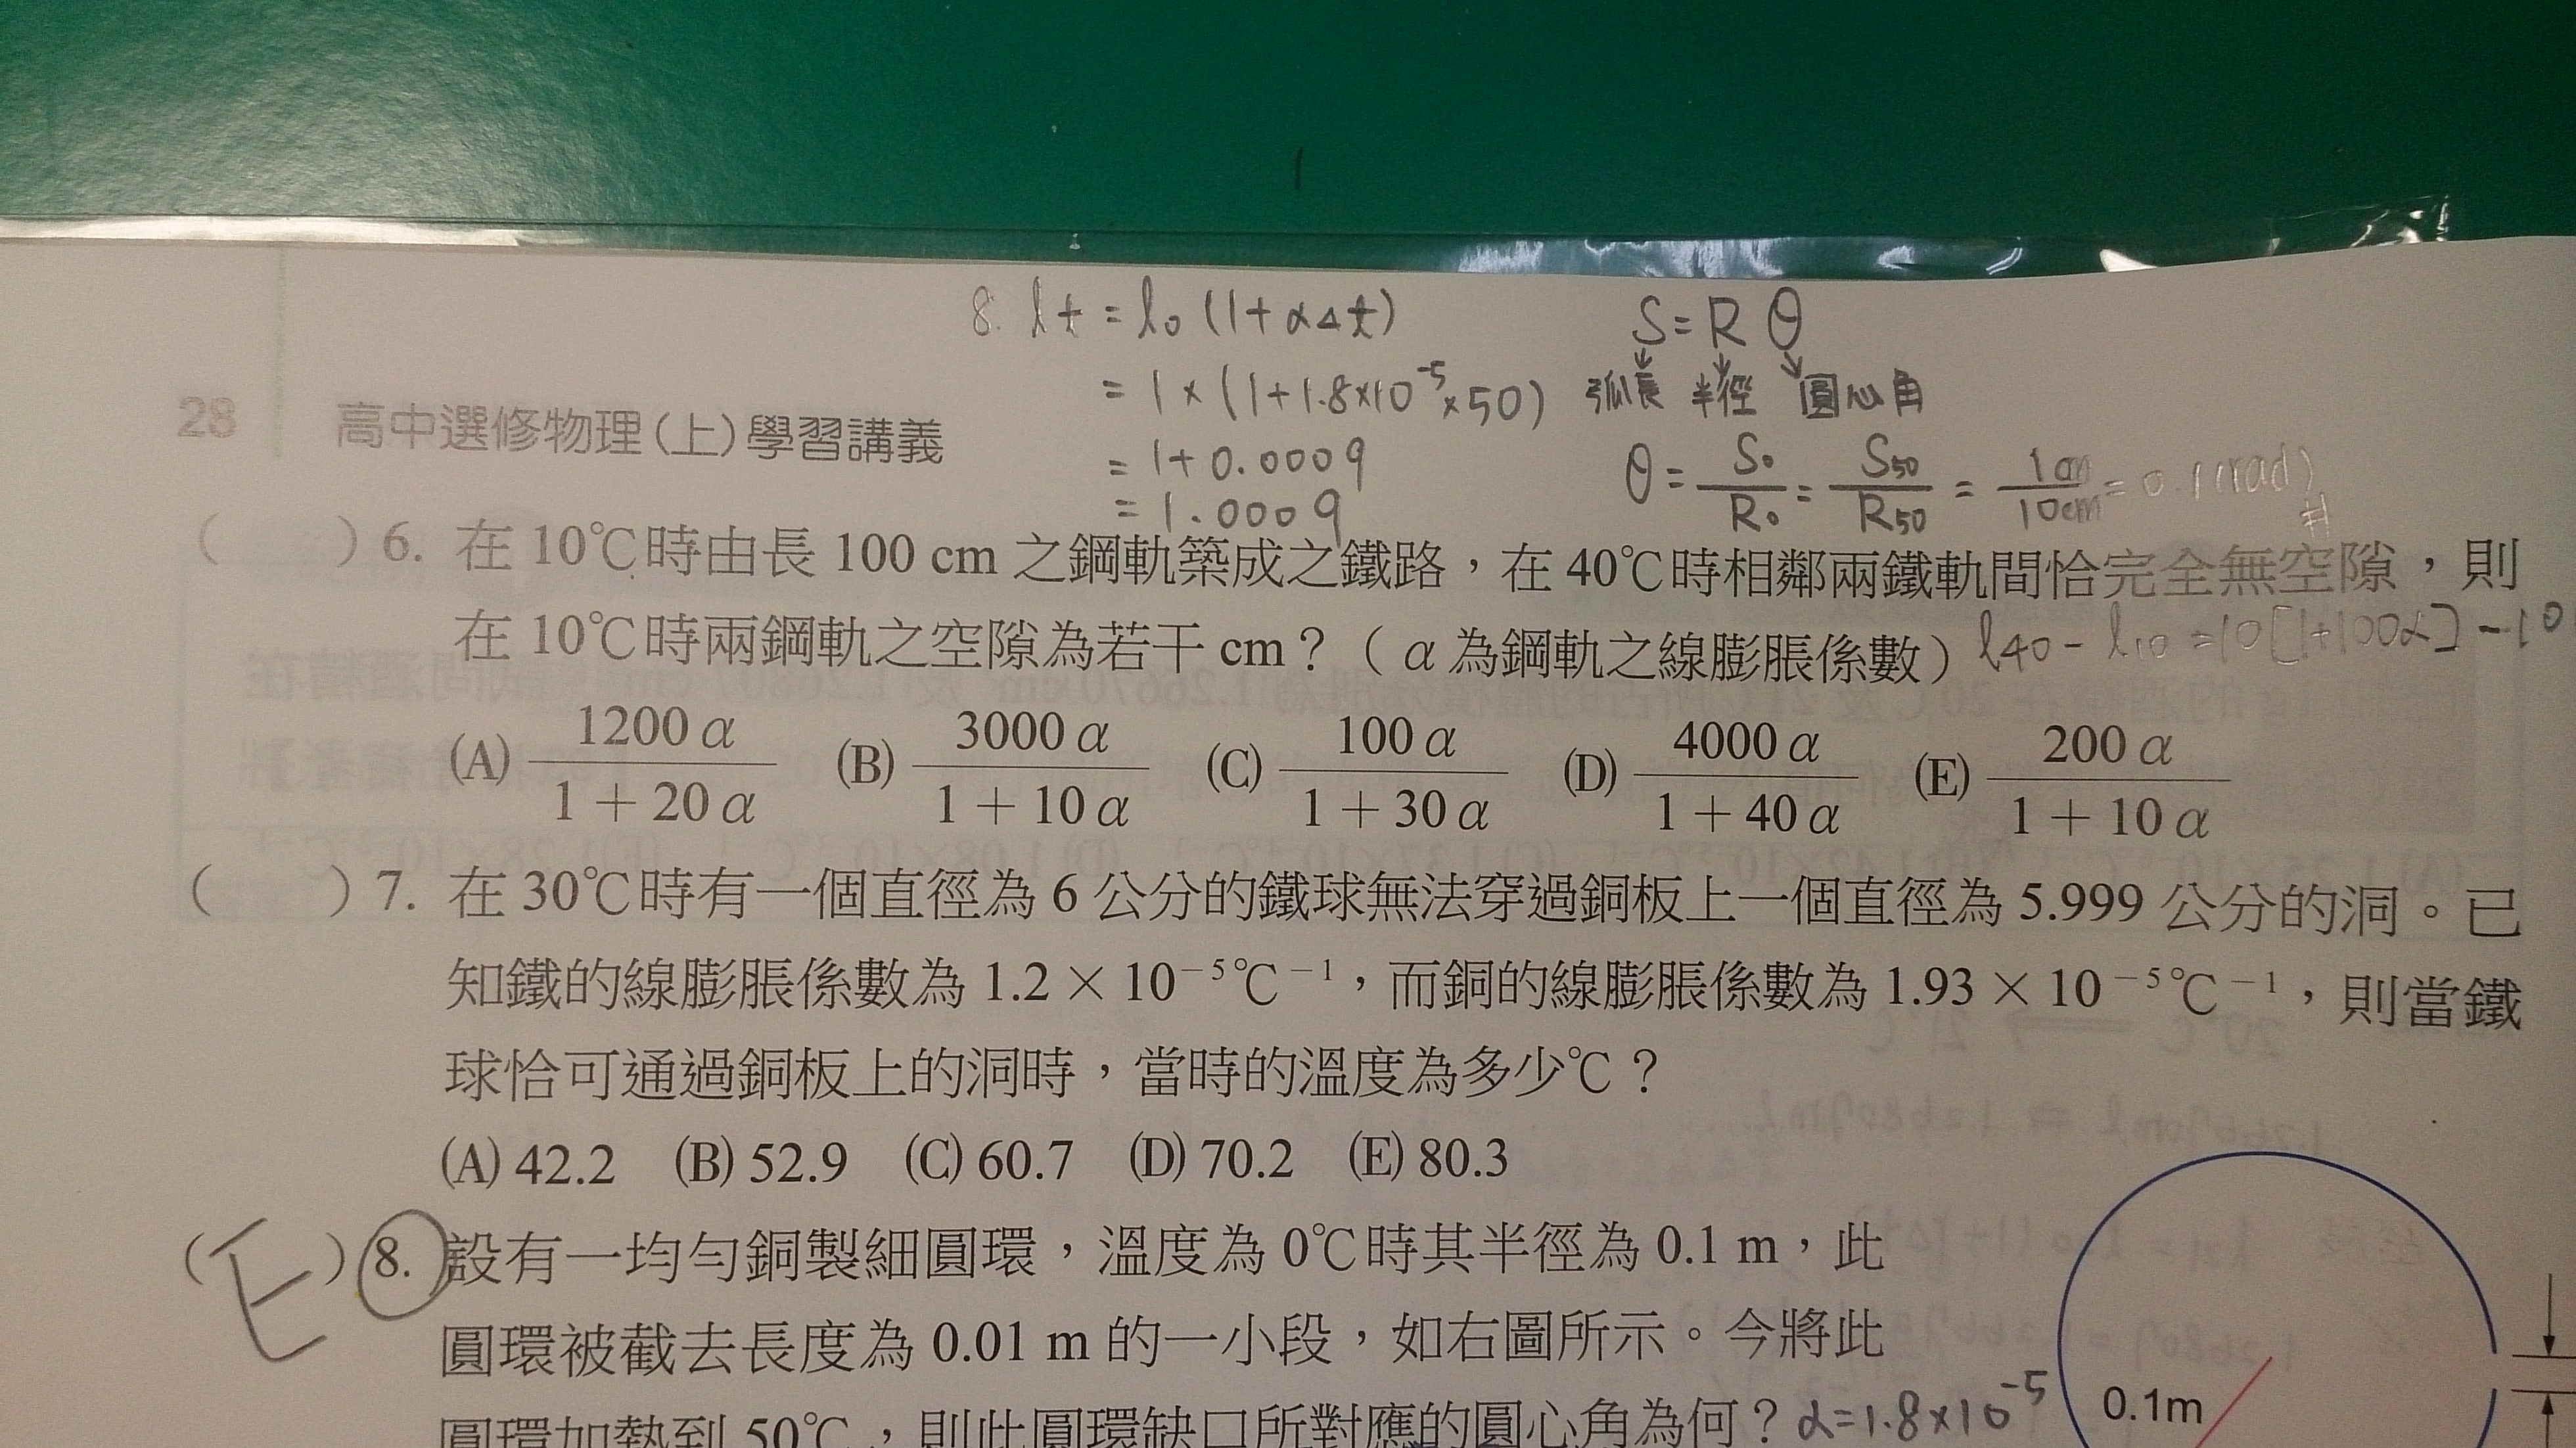 8. lt = l₀ (1+α△t)
= 1×(1+1.8×10⁻⁵×50)
= 1+0.0009
= 1.0009
S=Rθ
弧長 半徑 圓心角
θ = S₀/R₀ = S₅₀/R₅₀ = 1cm/10cm = 0.1(rad)#
28 高中選修物理(上)學習講義
( ) 6. 在 10℃時由長 100 cm 之鋼軌築成之鐵路，在 40℃時相鄰兩鐵軌間恰完全無空隙，則
在 10℃時兩鋼軌之空隙為若干 cm？（α為鋼軌之線膨脹係數） l₄₀ - l₁₀ = 10[1+100α] - 10
(A) 1200α/1＋20α (B) 3000α/1＋10α (C) 100α/1＋30α (D) 4000α/1＋40α (E) 200α/1＋10α
( ) 7. 在 30℃時有一個直徑為 6 公分的鐵球無法穿過銅板上一個直徑為 5.999 公分的洞。已
知鐵的線膨脹係數為 1.2 × 10⁻⁵℃⁻¹，而銅的線膨脹係數為 1.93 × 10⁻⁵℃⁻¹，則當鐵
球恰可通過銅板上的洞時，當時的溫度為多少℃？
(A) 42.2 (B) 52.9 (C) 60.7 (D) 70.2 (E) 80.3
(E) 8. 設有一均勻銅製細圓環，溫度為 0℃時其半徑為 0.1 m，此
圓環被截去長度為 0.01 m 的一小段，如右圖所示。今將此
圓環加熱到 50℃，則此圓環缺口所對應的圓心角為何？ α=1.8×10⁻⁵
0.1m